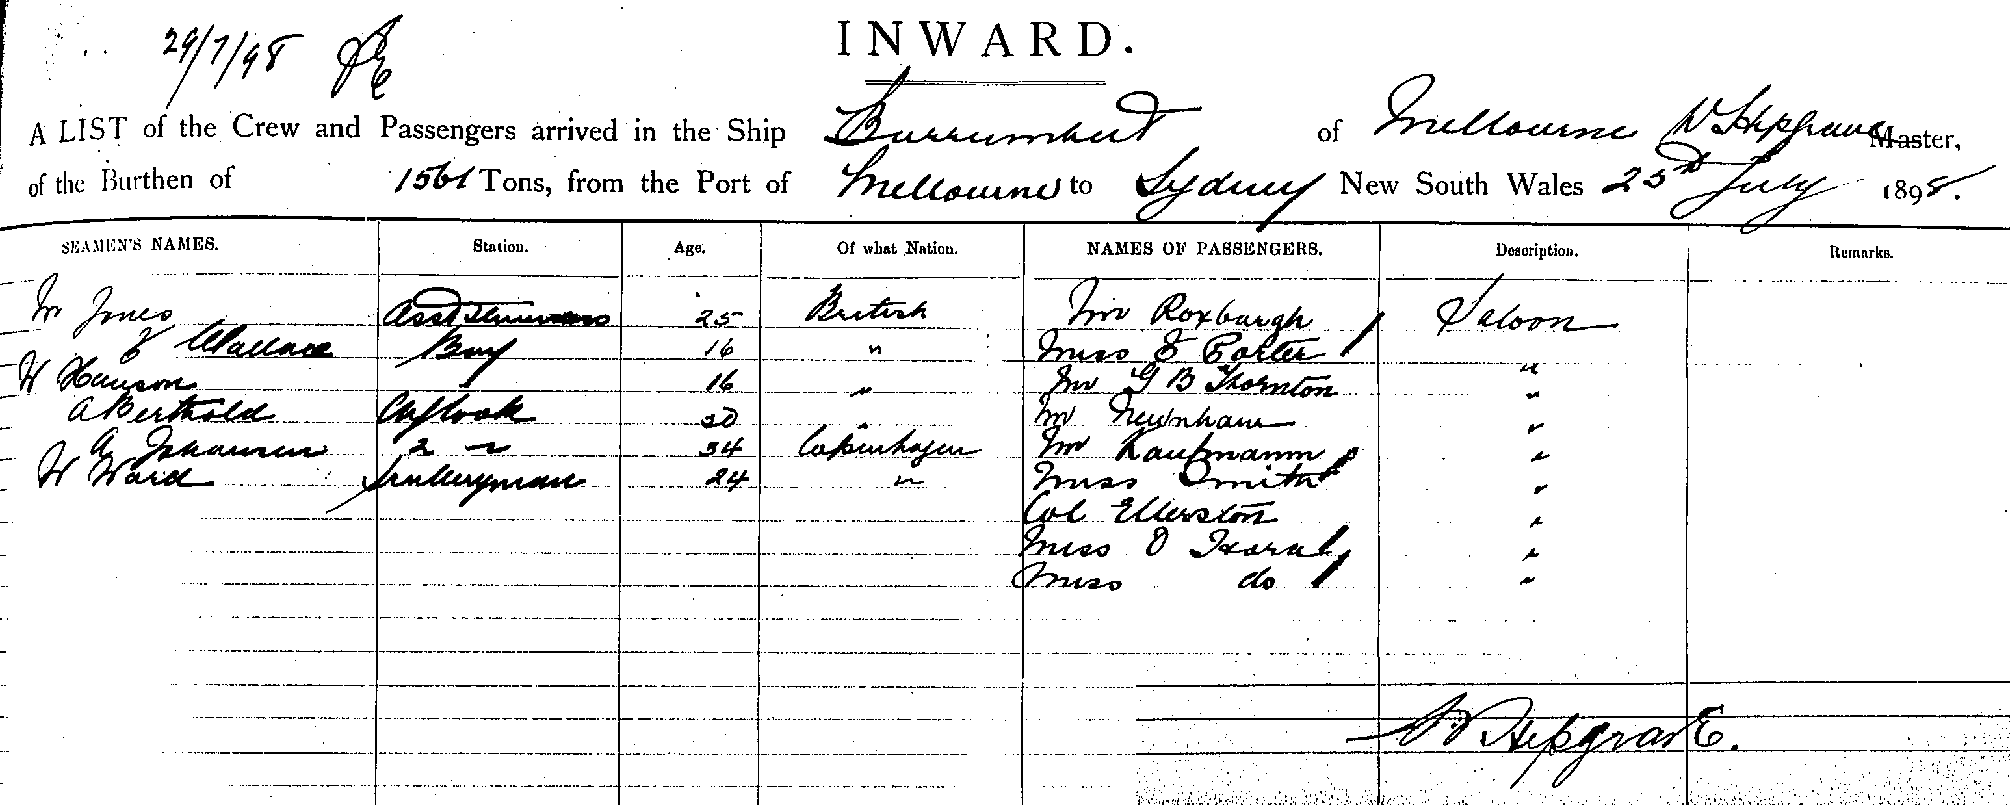 29/7/98
INWARD.
A LIST of the Crew and Passengers arrived in the Ship Burrumbeet of Melbourne W Hipgrave Master,
of the Burthen of 1561 Tons, from the Port of Melbourne to Sydney New South Wales 25th July 1898.
SEAMEN'S NAMES. Station. Age. Of what Nation. NAMES OF PASSENGERS. Description. Remarks.
W Jones 25 British Mr Roxburgh Saloon
Wallace Boy 16 " Miss E Porter "
W Hanson 16 " Mr G B Thornton "
A Berthold Ch Cook 30 Mr Newnham "
A Johansen 2 " 34 Copenhagen Mr Kaufmann "
W Ward Sculleryman 24 " Miss Smith "
Col Ellerston "
Miss O "
Miss do "
W Hipgrave.